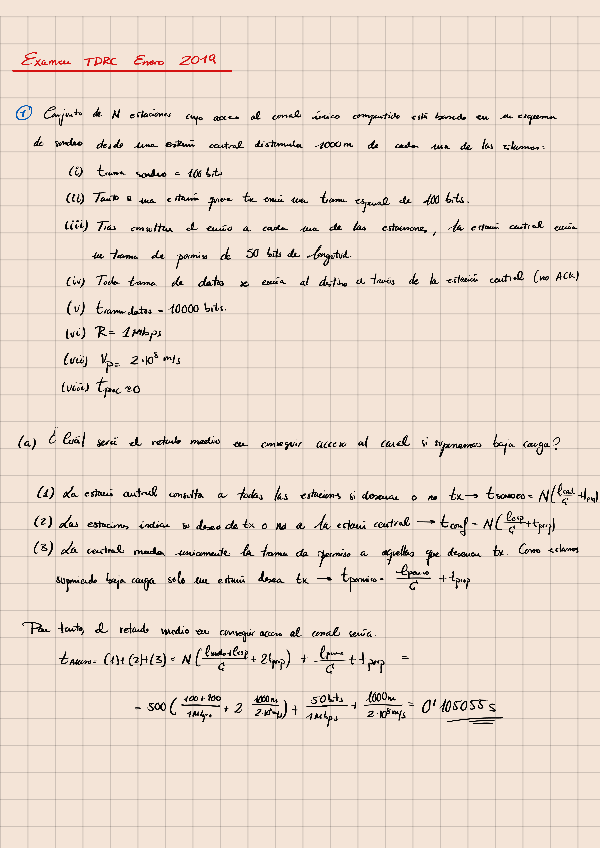 Examen TDRC Enero 2019
① Conjunto de N estaciones cuyo acceso al canal único compartido está basado en un esquema
de sondeo desde una estación central distanciada 1000m de cada una de las estaciones:
(i) trama sondeo = 100 bits
(ii) Tanto si una estación quiere tx envía una trama especial de 100 bits.
(iii) Tras consultar el envío a cada una de las estaciones, la estación central envía
un trama de permiso de 50 bits de longitud.
(iv) Toda trama de datos se envía al destino a través de la estación central (no ACK)
(v) trama datos = 10000 bits.
(vi) R = 1 Mbps
(vii) Vp = 2·10⁸ m/s
(viii) tproc ≈ 0
(a) ¿Cuál será el retardo medio en conseguir acceso al canal si suponemos baja carga?
(1) La estación central consulta a todas las estaciones si desean o no tx → tsondeo = N(
(2) Las estaciones indican su deseo de tx o no a la estación central → tconf = N(lesp/C + tprop)
(3) La central manda únicamente la trama de permiso a aquellas que desean tx. Como estamos
suponiendo baja carga solo un estación desea tx → tpermiso = lpermiso/C + tprop
Por tanto, el retardo medio en conseguir acceso al canal sería.
tacceso = (1)+(2)+(3) = N(lsondeo+lesp/C + 2tprop) + lperm/C + tprop =
= 500(100+100/1Mbps + 2 1000m/2·10⁸m/s) + 50bits/1Mbps + 1000m/2·10⁸m/s = 0'105055 s